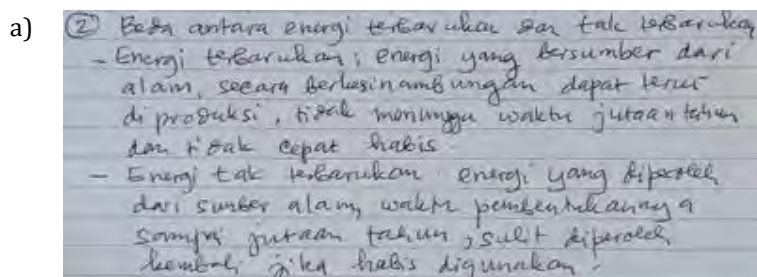 a) ② Beda antara energi terbarukan dan tak terbarukan
- Energi terbarukan; energi yang bersumber dari
alam, secara berkesinambungan dapat terus
diproduksi, tidak menunggu waktu jutaan tahun
dan tidak cepat habis.
- Energi tak terbarukan energi yang diperoleh
dari sumber alam, waktu pembentukannya
sampai jutaan tahun, sulit diperoleh
kembali jika habis digunakan.